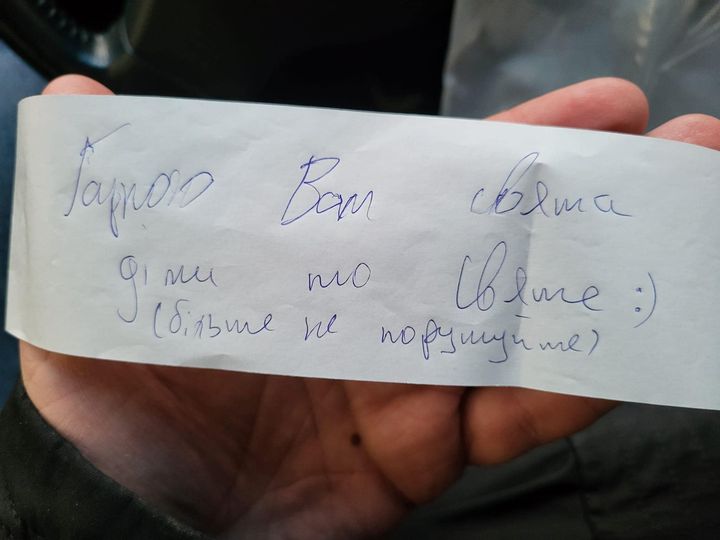 Гарного Вам свята
діти то Святе :)
(більше не порушуйте)